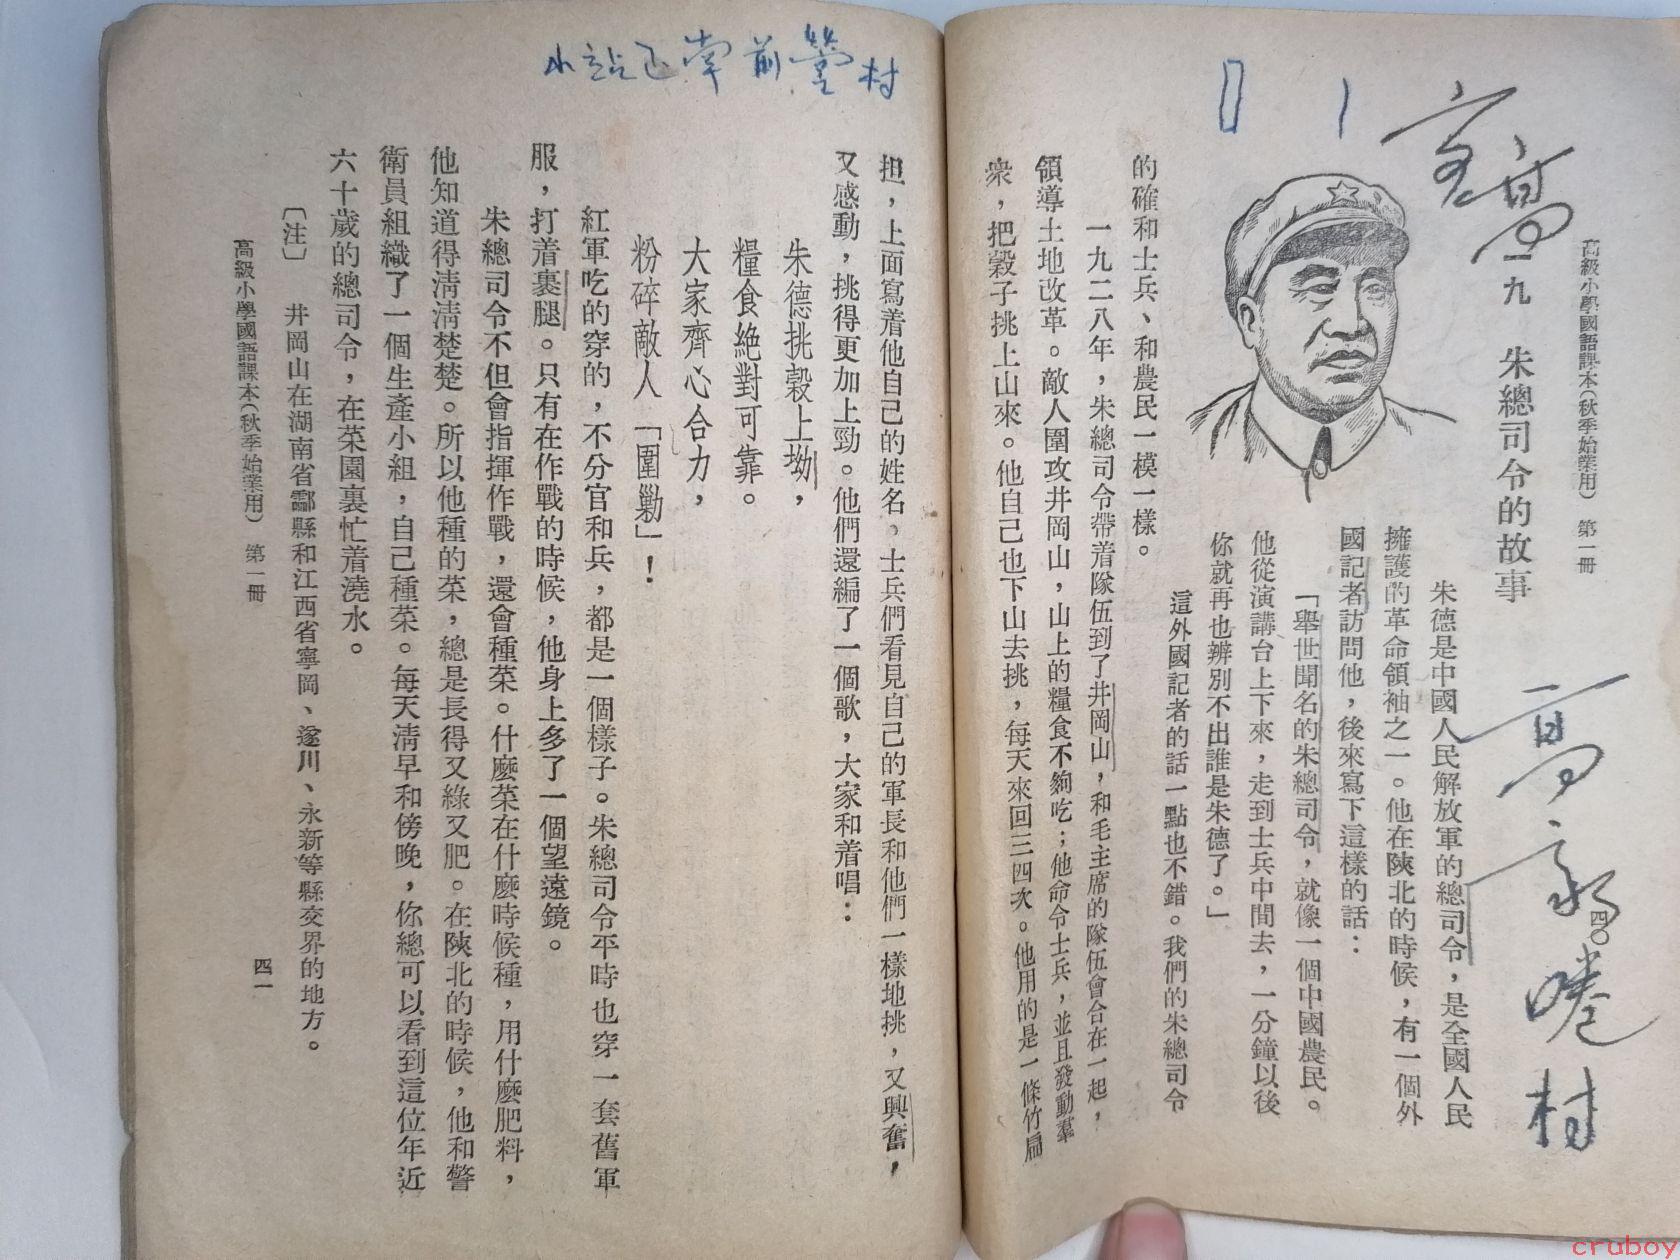 高級小學國語課本(秋季始業用)　第一冊
四〇
一九　朱總司令的故事
朱德是中國人民解放軍的總司令，是全國人民
擁護的革命領袖之一。他在陝北的時候，有一個外
國記者訪問他，後來寫下這樣的話：
「舉世聞名的朱總司令，就像一個中國農民。
他從演講台上下來，走到士兵中間去，一分鐘以後
你就再也辨別不出誰是朱德了。」
這外國記者的話一點也不錯。我們的朱總司令
的確和士兵、和農民一模一樣。
一九二八年，朱總司令帶着隊伍到了井岡山，和毛主席的隊伍會合在一起，
領導土地改革。敵人圍攻井岡山，山上的糧食不夠吃；他命令士兵，並且發動羣
衆，把穀子挑上山來。他自己也下山去挑，每天來回三四次。他用的是一條竹扁
村
前營村
担，上面寫着他自己的姓名。士兵們看見自己的軍長和他們一樣地挑，又興奮，
又感動，挑得更加上勁。他們還編了一個歌，大家和着唱：
朱德挑穀上坳，
糧食絶對可靠。
大家齊心合力，
粉碎敵人「圍勦」！
紅軍吃的穿的，不分官和兵，都是一個樣子。朱總司令平時也穿一套舊軍
服，打着裹腿。只有在作戰的時候，他身上多了一個望遠鏡。
朱總司令不但會指揮作戰，還會種菜。什麽菜在什麽時候種，用什麽肥料，
他知道得淸淸楚楚。所以他種的菜，總是長得又綠又肥。在陝北的時候，他和警
衛員組織了一個生產小組，自己種菜。每天淸早和傍晚，你總可以看到這位年近
六十歲的總司令，在菜園裏忙着澆水。
〔注〕　井岡山在湖南省酃縣和江西省寧岡、遂川、永新等縣交界的地方。
高級小學國語課本(秋季始業用)　第一冊
四一
cruboy